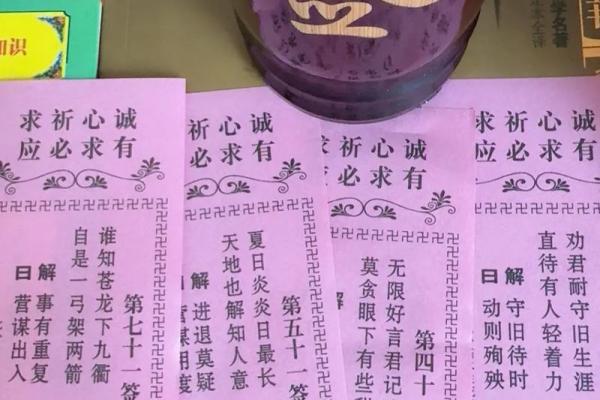 知识
学名著
诚心祈求
有求必应
第七十一签
谁知苍龙下九衢
自是一弓架两箭
解曰
事有重复
营谋出入
诚心祈
有求必
第五十一签
夏日炎炎日最长
天地也解知人意
解曰
进退莫疑
营谋用度
诚心祈
有求必
第四十
无限好言君记
莫贪眼下有些
解
诚心祈求
有求必应
劝君耐守旧生涯
直待有人轻着力
解曰
守旧待时
动则殉殃